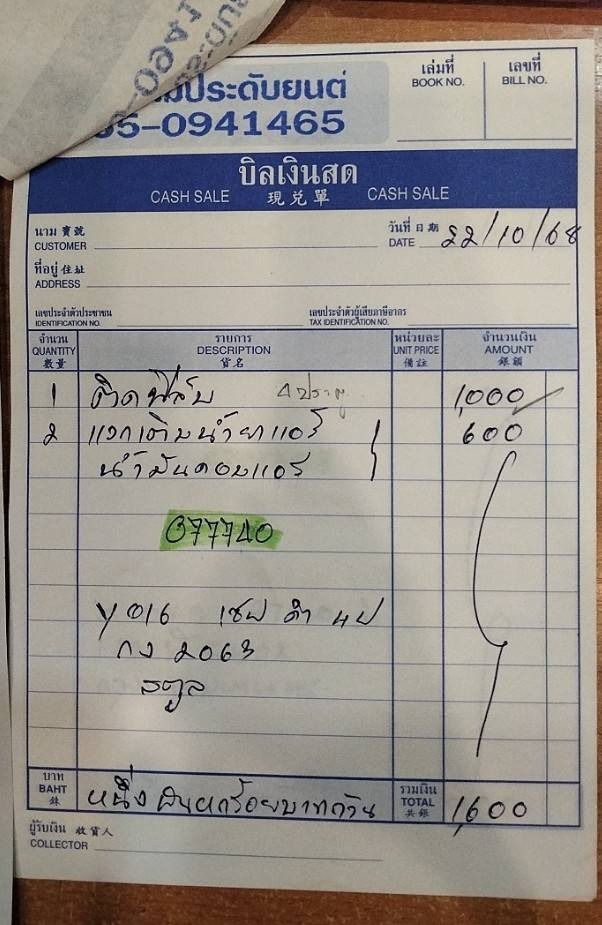 ประดับยนต์
5-0941465
เล่มที่
BOOK NO.
เลขที่
BILL NO.
บิลเงินสด
CASH SALE 現兌單 CASH SALE
นาม 寶號
CUSTOMER
วันที่ 日期
DATE 22/10/68
ที่อยู่ 住址
ADDRESS
เลขประจำตัวประชาชน
IDENTIFICATION NO.
เลขประจำตัวผู้เสียภาษีอากร
TAX IDENTIFICATION NO.
จำนวน
QUANTITY
數量
รายการ
DESCRIPTION
貨名
หน่วยละ
UNIT PRICE
備註
จำนวนเงิน
AMOUNT
銀額
1 ติดฟิล์ม 4ประตู 1,000
2 เติมน้ำยาแอร์ 600
น้ำมันคอมแอร์
077740
Y016 เชฟ ดำ 4ป
กง 2063
สตูล
บาท
BAHT
銖
หนึ่งพันหกร้อยบาทถ้วน
รวมเงิน
TOTAL
共銀
1,600
ผู้รับเงิน 收貨人
COLLECTOR